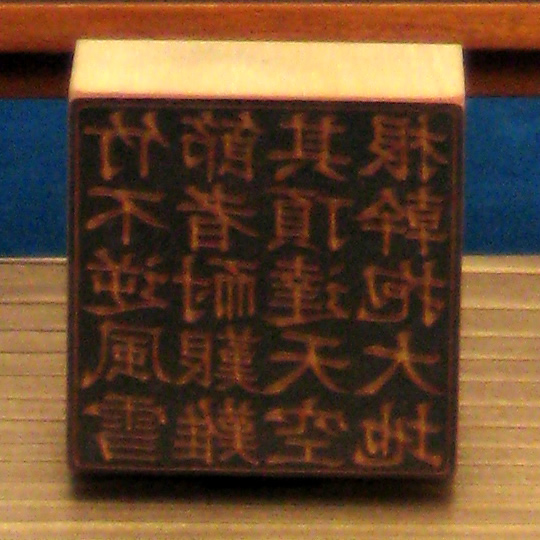 竹不逆風雪
節者耐艱難
其頂達天空
根幹抱大地